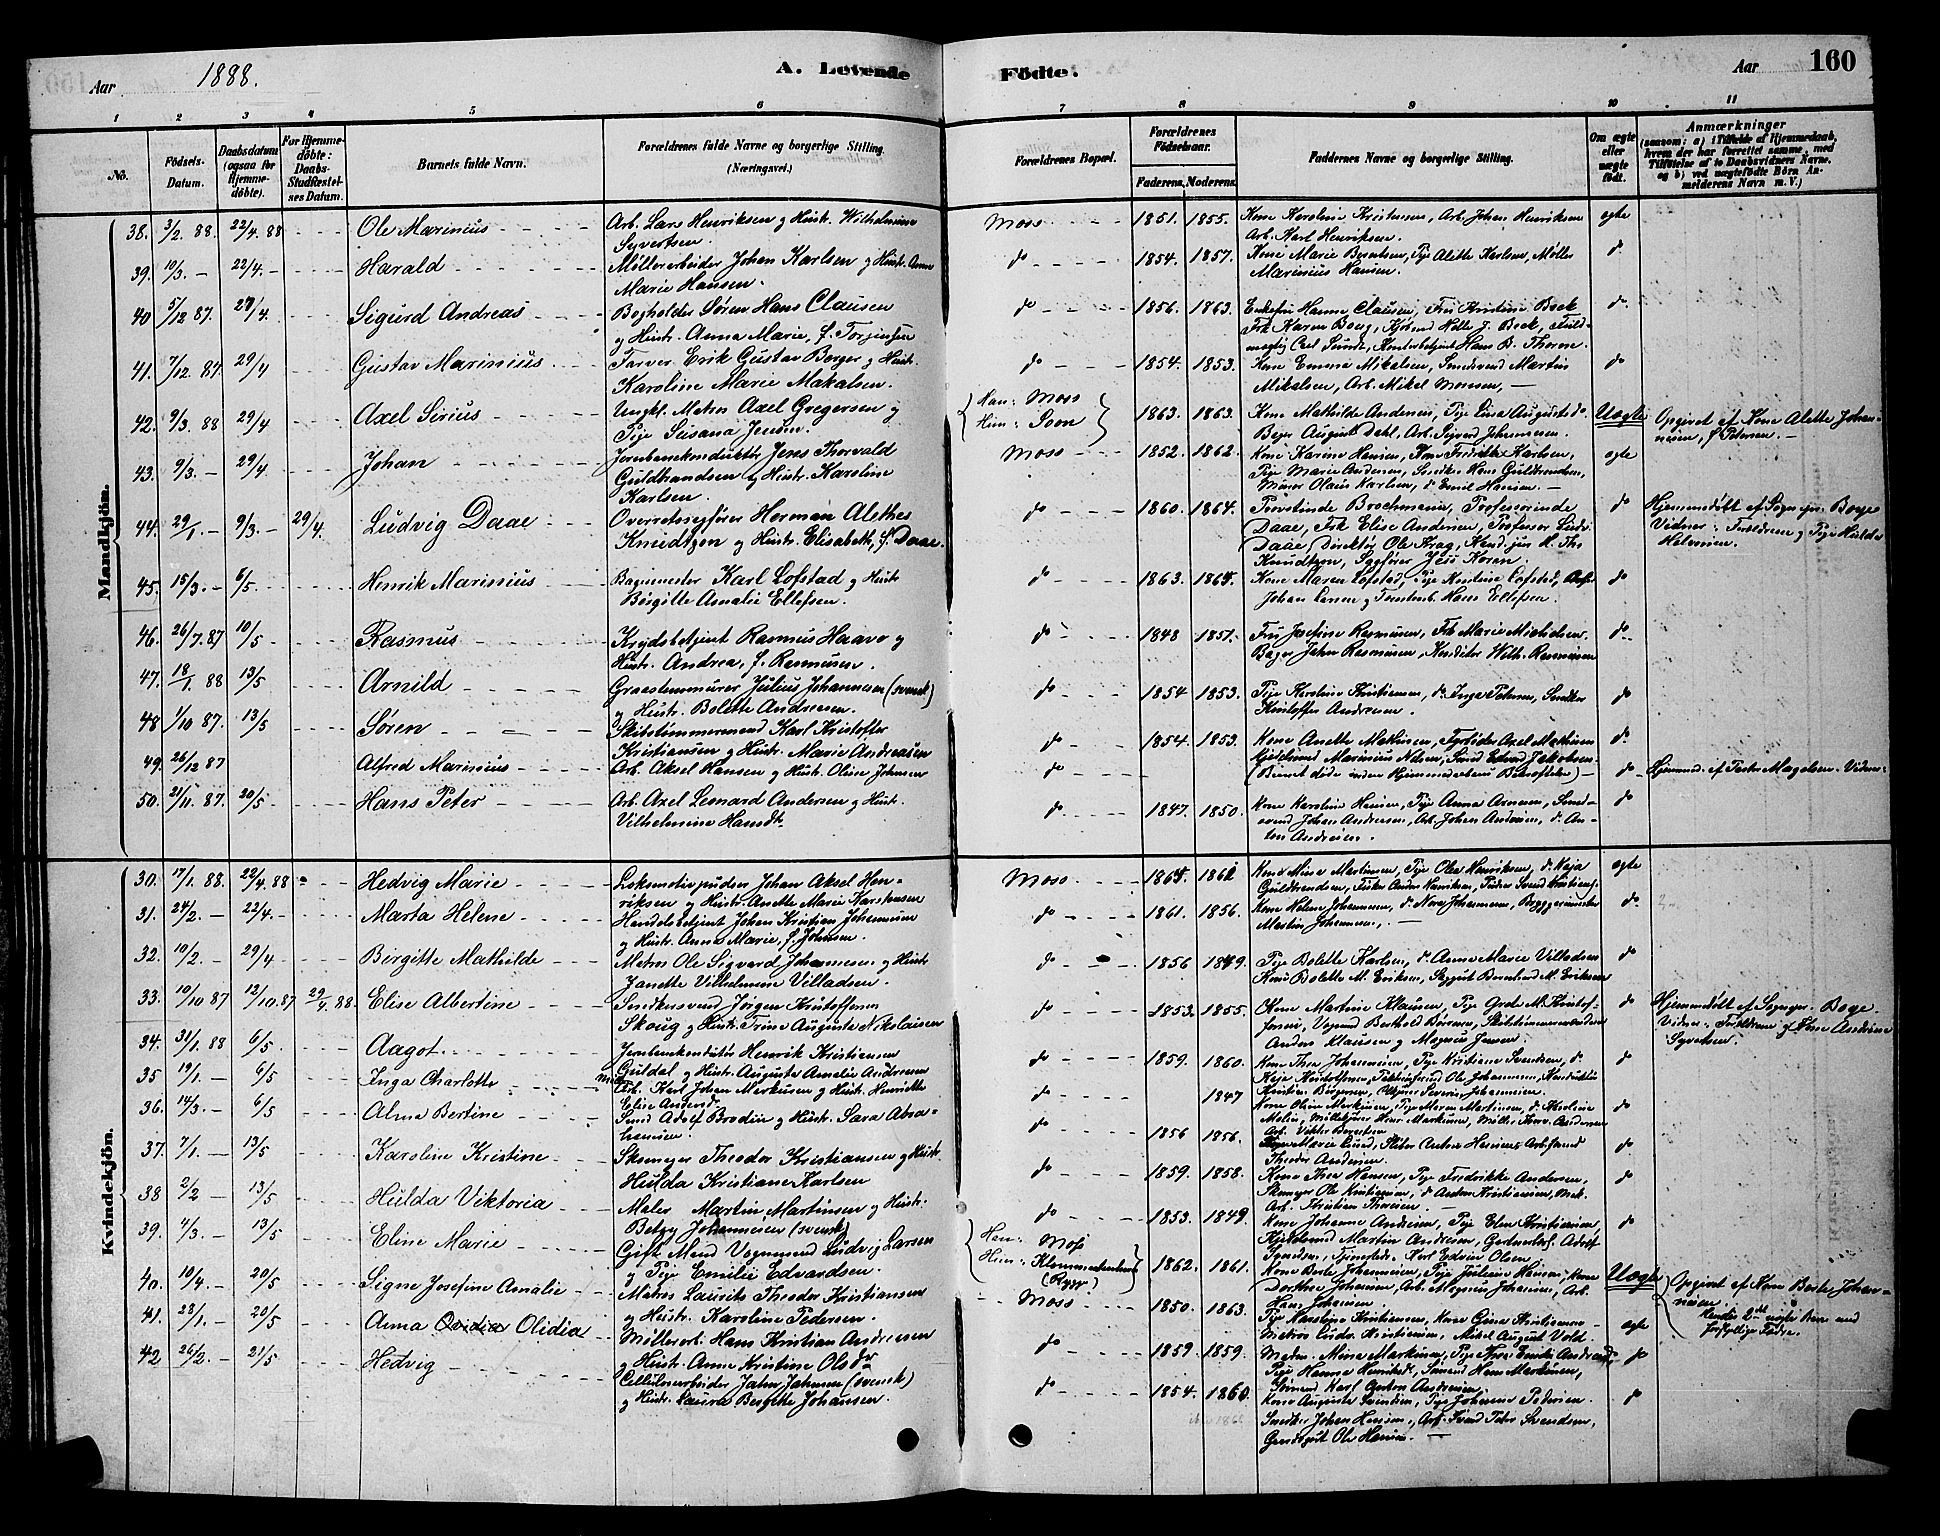 Aar 1888. A. Levende Födte. Aar 160
1 2 3 4 5 6 7 8 9 10 11
No.
Födsels-Datum.
Daabsdatum (ogsaa for Hjemmedöbte).
For Hjemmedöbte: Daabs-Stadfæstelses Datum.
Barnets fulde Navn.
Forældrenes fulde Navne og borgerlige Stilling. (Næringsvei.)
Forældrenes Bopæl.
Forældrenes Födselsaar.
Faderens. Moderens.
Faddernes Navne og borgerlige Stilling.
Om ægte eller uægte födt.
Anmærkninger
(saasom: a) i Tilfælde af Hjemmedaab, hvem der har forrettet samme, med Tilföielse af to Daabsvidners Navne, og b) ved uægtefödte Börn Anmelderens Navn m. V.)
Mandkjön.
38. 3/2. 88. 22/4. 88 Ole Marinius Arb. Lars Henriksen og Hustr. Wilhelmine Syvertsen. Moss 1851. 1855. Kone Karoline Kristensen, Arb. Johan Henriksen Arb. Karl Henriksen. ægte
39. 10/3. 22/4. Harald Møllerarbeider Johan Karlsen og Hustr. Anne Marie Hansen. do 1854. 1857. Kone Marie Berntsen, Pige Alette Karlsen, Møller Marinius Hansen. do
40 5/12 87. 29/4. Sigurd Andreas Bogholder Søren Hans Clausen og Hustr. Anna Marie, f. Torjensen do 1856. 1863. Enkefru Hanne Clausen, Fru Kristine Beck Frk Karen Boug, Kjøbmd J. Beck, Carl Sundt, Kontorbetjent Hans B. Throne. do
41. 7/12. 87 29/4 Gustav Marinius Farver Erik Gustav Borger og Hustr. Karoline Marie Makalsen. do 1854. 1853. Kone Emma Mikalsen, Martin Mikalsen, Arb. Mikel Monsen, do
42. 9/3. 88 29/4 Axel Sirius Ungkl. Matros Axel Gregersen og Pige Susana Jensen. Han: Moss Hun: Soon 1863. 1863. Kone Mathilde Andersen, Pige Lina Augusta do Bager August Dahl, Arb. Sigvard Johannesen. Uægte Opgivet af Kone Alette Johannesen, f. Petersen.
43. 9/3. 29/4. Johan Jernbanekonduktør Jens Thorvald Guldbrandsen og Hustr. Karoline Karlsen. Moss 1852. 1862. Kone Karine Hansen, Kone Fredrikke Karlsen, Pige Marie Andersen, Snedk. Hans Guldbrandsen, Murer Olaus Karlsen, do Emil Hansen. ægte
44. 29/1. 9/3. 29/4. Ludvig Daae Overretssagfører Herman Alethes Knudtzon og Hustr. Elisabeth, f. Daae. do 1860. 1864. Provstinde Brochmann, Professorinde Daae, Frk Elise Andersen, Professor Ludv. Daae, Direktør Ole Krag, Kand. jur. Ths Knudtzon, Sagfører Jess Koren. do Hjemmedøbt af Sogneprs. Boye Vidner: Forældrene og Pige Hulda Halvorsen.
45. 15/3. 6/5. Henrik Marinius Bagermester Karl Lofstad og Hustr. Birgitte Amalie Ellefsen. do 1863. 1864. Kone Maren Lofstad, Pige Kristine Lofstad, Johan Larsen og Hans Ellefsen. do
46. 26/7. 87 10/5 Rasmus Krydsbetjent Rasmus Haavo og Hustr. Andrea, f. Rasmusen. do 1848 1851. Fru Josefine Rasmusen, Frk Marie Michelsen, Bager John Rasmusen, Konditor Wilh. Rasmusen do
47. 18/1. 88 13/5 Arnild Graastensmurer Julius Johannesen (svensk) og Hustr. Bolette Andresen. do 1854 1853. Pige Karoline Kristiansen, do Inga Petersen, Snedker Kristoffer Andresen. do
48 1/10 87. 13/5. Søren Skibstømmermand Karl Kristoffer Kristiansen og Hustr. Marie Andreasen do 1854. 1853. Kone Anette Mathisen, Axel Mathisen Marinius Nilsen, Edvard Jakobsen. do
49. 26/12 87 Alfred Marinius Arb. Aksel Hansen og Hustr. Oline Johnsen do (Barnet døde inden Hjemmedaabens Bekræftelse) do Hjemmed. af Magelsen. Vidner:
50. 21/11. 87. 20/5. Hans Peter Arb. Axel Lennard Andersen og Hustr. Vilhelmine Hamdt. do 1847. 1850. Kone Karoline Hansen, Pige Anna Arnesen, Johan Andersen, Arb. Johan Andersen, do Anton Andresen. do
Kvindekjön.
30. 17/1. 88. 22/4. 88 Hedvig Marie Lokomotivpudser Johan Aksel Henriksen og Hustr. Anette Marie Karstensen Moss 1864. 1861 Kone Mina Martinsen, Pige Olea Henriksen, do Kaja Guldbrandsen, Anders Henriksen, ægte
31. 24/2. 22/4. Marta Helene Handelsbetjent Johan Kristian Johannesen og Hustr. Anna Marie, f. Johnsen. do 1861. 1856. Kone Helene Johannesen, do Nora Johannesen, Bryggerimester Martin Johannesen. do
32. 10/2. 29/4 Birgitte Mathilde Matros Ole Sigvard Johannesen og Hustr. Janette Vilhelmine Villadsen. do 1856 1849. Pige Bolette Karlsen, do Anna Marie Villadsen Kone Bolette M. Eriksen, Bernhard M. Eriksen do
33. 10/10 87 12/10. 87 29/4. 88. Elise Albertine Snedkersvend Jørgen Kristoffersen Skoug og Hustr. Trine Auguste Nikolausen do 1853. 1855. Kone Martine Klausen, Pige Grete M. Kristoffersen, Vognmd Berthold Børresen, Skibstømmermændene Anders Klausen og Magnus Jensen. do Hjemmedøbt af Sognepr. Boye. Vidner: Forældrene og Andrine Syvertsen.
34. 31/1. 88 6/5. Aagot Jernbanekonduktør Henrik Kristiansen Guldal og Hustr. Augusta Amalie Andresen do 1859. 1860. Kone Thea Johannesen, Pige Kristiane Svendsen, do Kaja Kristoffersen, Ole Johannesen, Konduktør Kristian Børgesen, Severin Johannesen. do
35 19/1. 6/5. Inga Charlotte Arb. Karl Johan Markusen og Hustr. Henriette Elise Andersd. do 1847 Kone Oline Markusen, Pige Maren Martinsen, do Karoline Melin, Hans Markusen, Andersen Arb. Viktor Bengtsen do
36. 14/3. 6/5. Alma Bertine Smed Adolf Brodin og Hustr. Sara Abrahamsen. do 1856 1856. Marie Lund, Anton Hansen, Theodor Andersen. do
37. 7/1. 13/5 Karoline Kristine Skomager Theodor Kristiansen og Hustr. Hulda Kristiane Karlsen do 1859. 1858. Kone Thea Hansen, Pige Fredrikke Andersen, Skomager Ole Kristiansen, do Anton Kristiansen, Arb. Kristian Thoresen. do
38 2/2 13/5. Hulda Viktoria Maler Martin Martinsen og Hustr. Betzy Johannesen (svensk) do 1853. 1849. Kone Johanne Andersen, Pige Elen Kristiansen, Martin Andresen, Adolf Karl Edvin Olsen. do
39. 4/3. 13/5. Eline Marie Gift Mand Vognmand Ludvig Larsen og Pige Emilie Edvardsen. Han: Moss Hun: (Rygge) 1862. 1861. Kone Berte Johansen, Pige Juline Hansen, Kone Dorthea Johansen, Arb. Magnus Johansen, Arb. Hans Johansen. Uægte Opgivet af Kone Berte Johannesen. Hendes 2det uægte Barn med forskjellige Fædre.
40. 10/4. 20/5 Signe Josefine Amalie Matros Laurits Theodor Kristiansen og Hustr. Karoline Pedersen. Moss 1850. 1863. Pige Karoline Kristiansen, Kone Gina Kristiansen, Matros Ludv. Kristiansen, Mikel August Vold. ægte
41. 28/1. 20/5 Anna Ovidia Olidia Møllearb. Hans Kristian Andresen og Hustr. Anne Kristine Olsdr do 1859. 1859. Madm. Mina Markusen, Pige Thea Andresen, Pige Hanna Hans Markusen, Karl Anton Andresen. do
42 26/2. 21/5 Hedvig Cellulosearbeider John Johnsen (svensk) og Hustr. Laura Bergitte Johansen. do 1854. 1860. Kone Auguste Svendsen, Pige Johanne Pedersen Snedker Johan Hansen, Arb. Svend Peter Svendsen, Ole Hansen. do